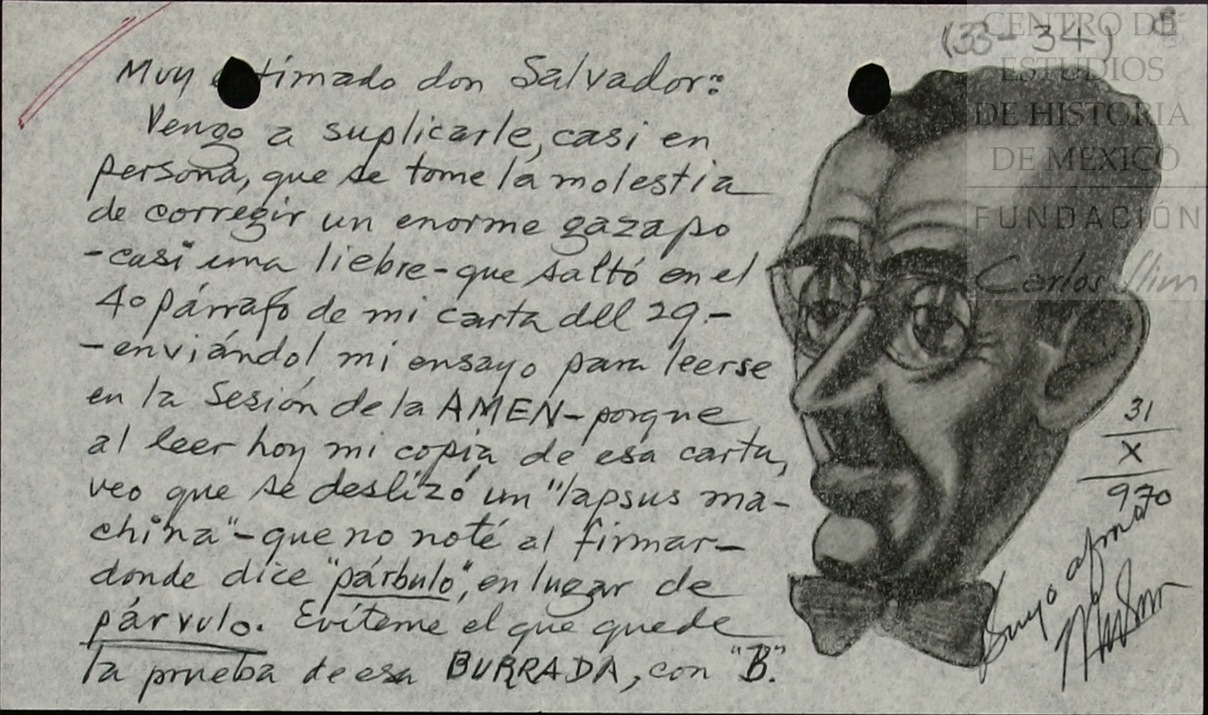 (33-34)
Muy estimado don Salvador:
Vengo a suplicarle, casi en
persona, que se tome la molestia
de corregir un enorme gazapo
-casi una liebre- que saltó en el
4o párrafo de mi carta del 29.-
-enviándol mi ensayo para leerse
en la Sesión de la AMEN- porque
al leer hoy mi copia de esa carta,
veo que se deslizó un "lapsus ma-
china"- que no noté al firmar-
donde dice "párbulo", en lugar de
párvulo. Evíteme el que quede
la prueba de esa BURRADA, con "B".
31
X
970
Suyo afmato
CENTRO DE
ESTUDIOS
DE HISTORIA
DE MÉXICO
FUNDACIÓN
Carlos Slim